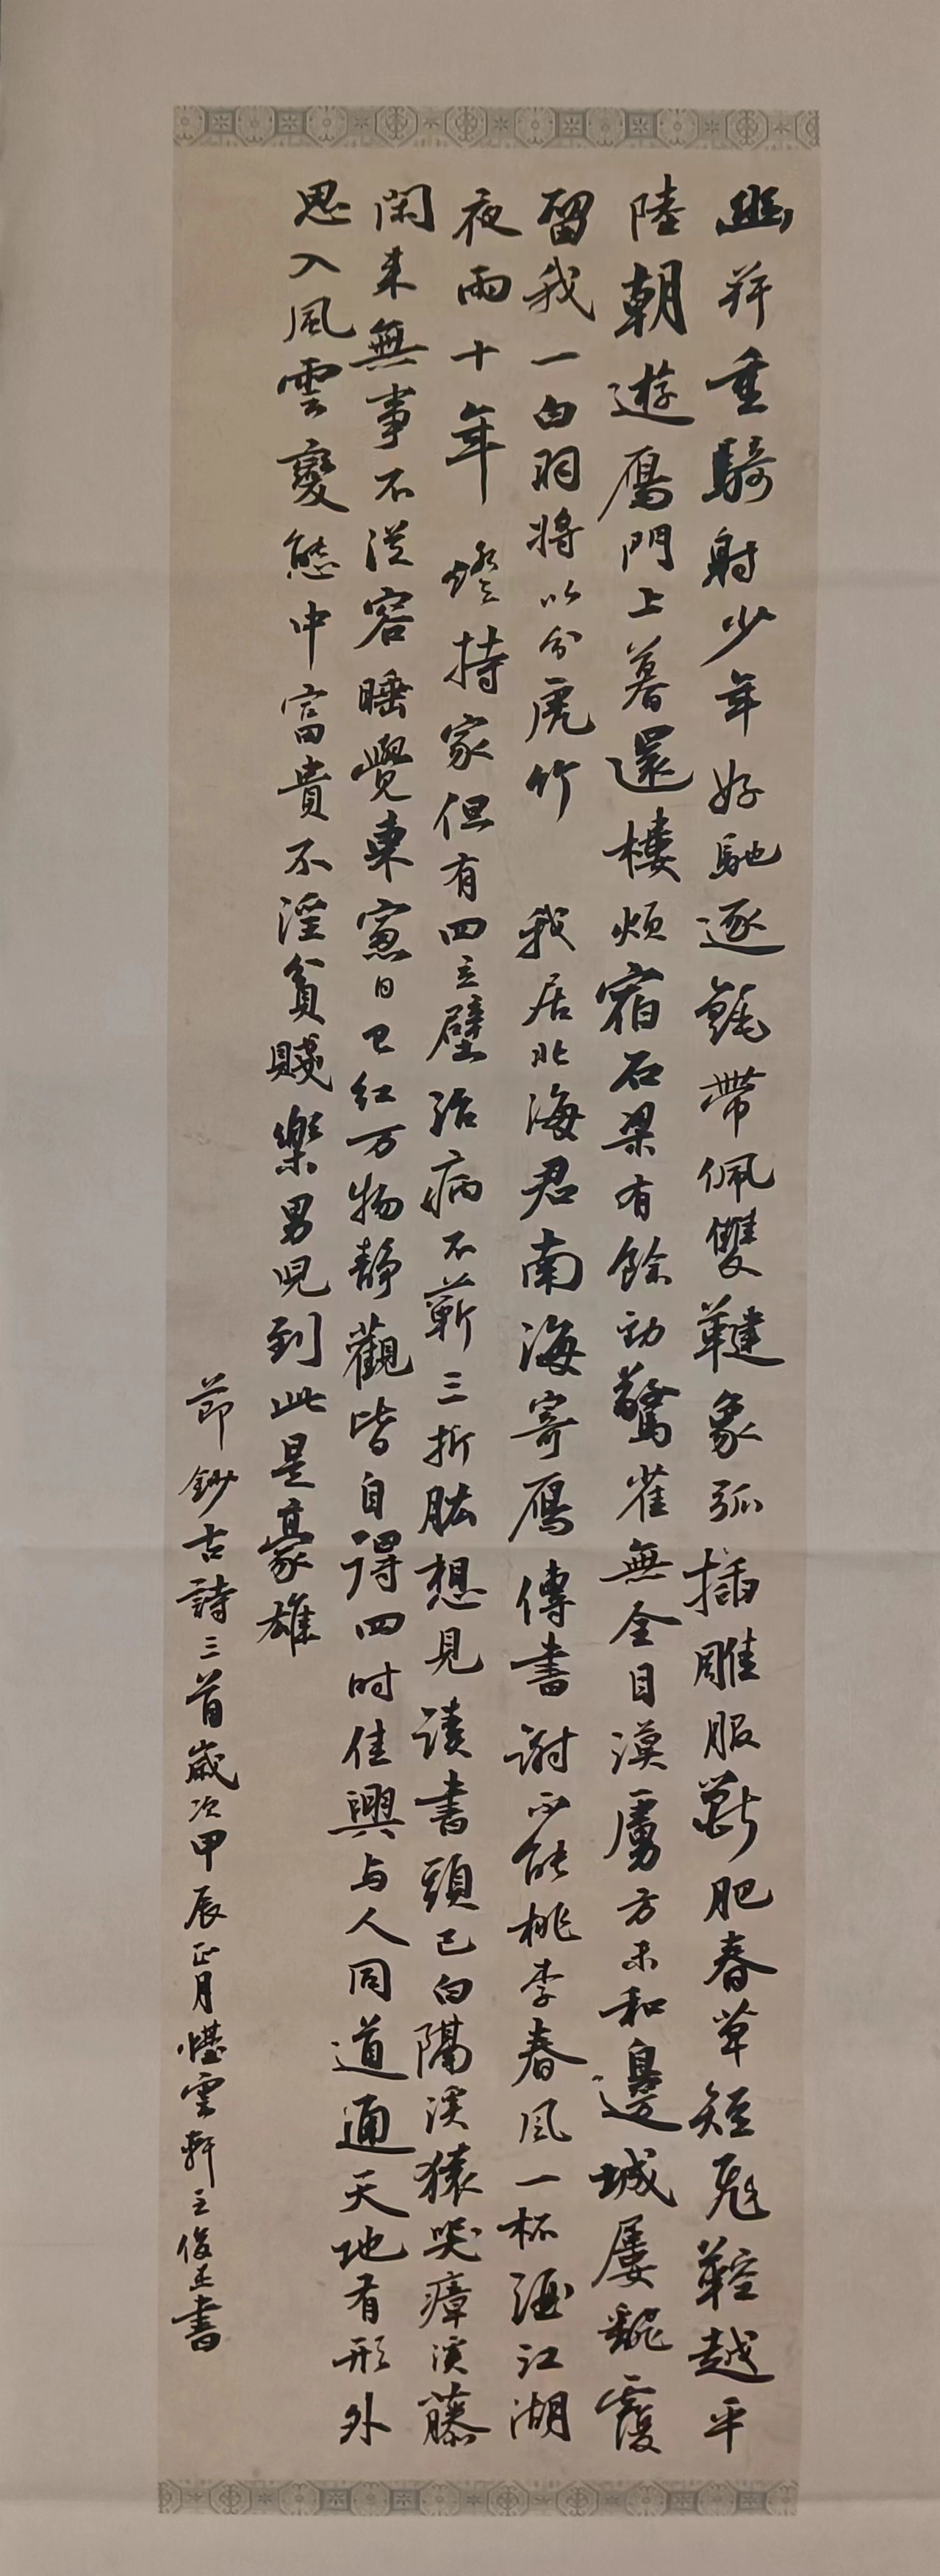 幽并重騎射少年好馳逐氈帶佩雙鞬象弧插雕服獸肥春草短飛鞚越平
陸朝遊鴈門上暮還樓煩宿石梁有餘劲驚雀無全目漠虜方未和邊城屢翻覆
留我一白羽將以分虎竹 我居北海君南海寄鴈傳書謝不能桃李春風一杯酒江湖
夜雨十年燈持家但有四立壁治病不蘄三折肱想見讀書頭已白隔溪猿哭瘴溪藤
閑来無事不從容睡覺東窻日已紅万物静觀皆自得四时佳興与人同道通天地有形外
思入風雲變態中富貴不淫貧賤樂男兒到此是豪雄
節鈔古詩三首歲次甲辰正月雲軒主俊正書